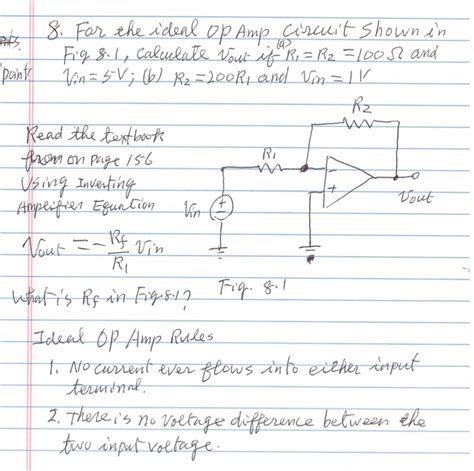 8. For the ideal Op Amp Circuit Shown in
Fig 8.1, calculate Vout if (a) R1 = R2 = 100Ω and
points
Vin = 5V; (b) R2 = 200R1 and Vin = 1V
R2
Read the textbook
from on page 156
R1
Using Inverting
Amplifier Equation
Vin
+
−
−
+
Vout
Vout = − Rf/R1 Vin
What is Rf in Fig. 8.1?
Fig. 8.1
Ideal Op Amp Rules
1. No current ever flows into either input
terminal.
2. There is no voltage difference between the
two input voltage.